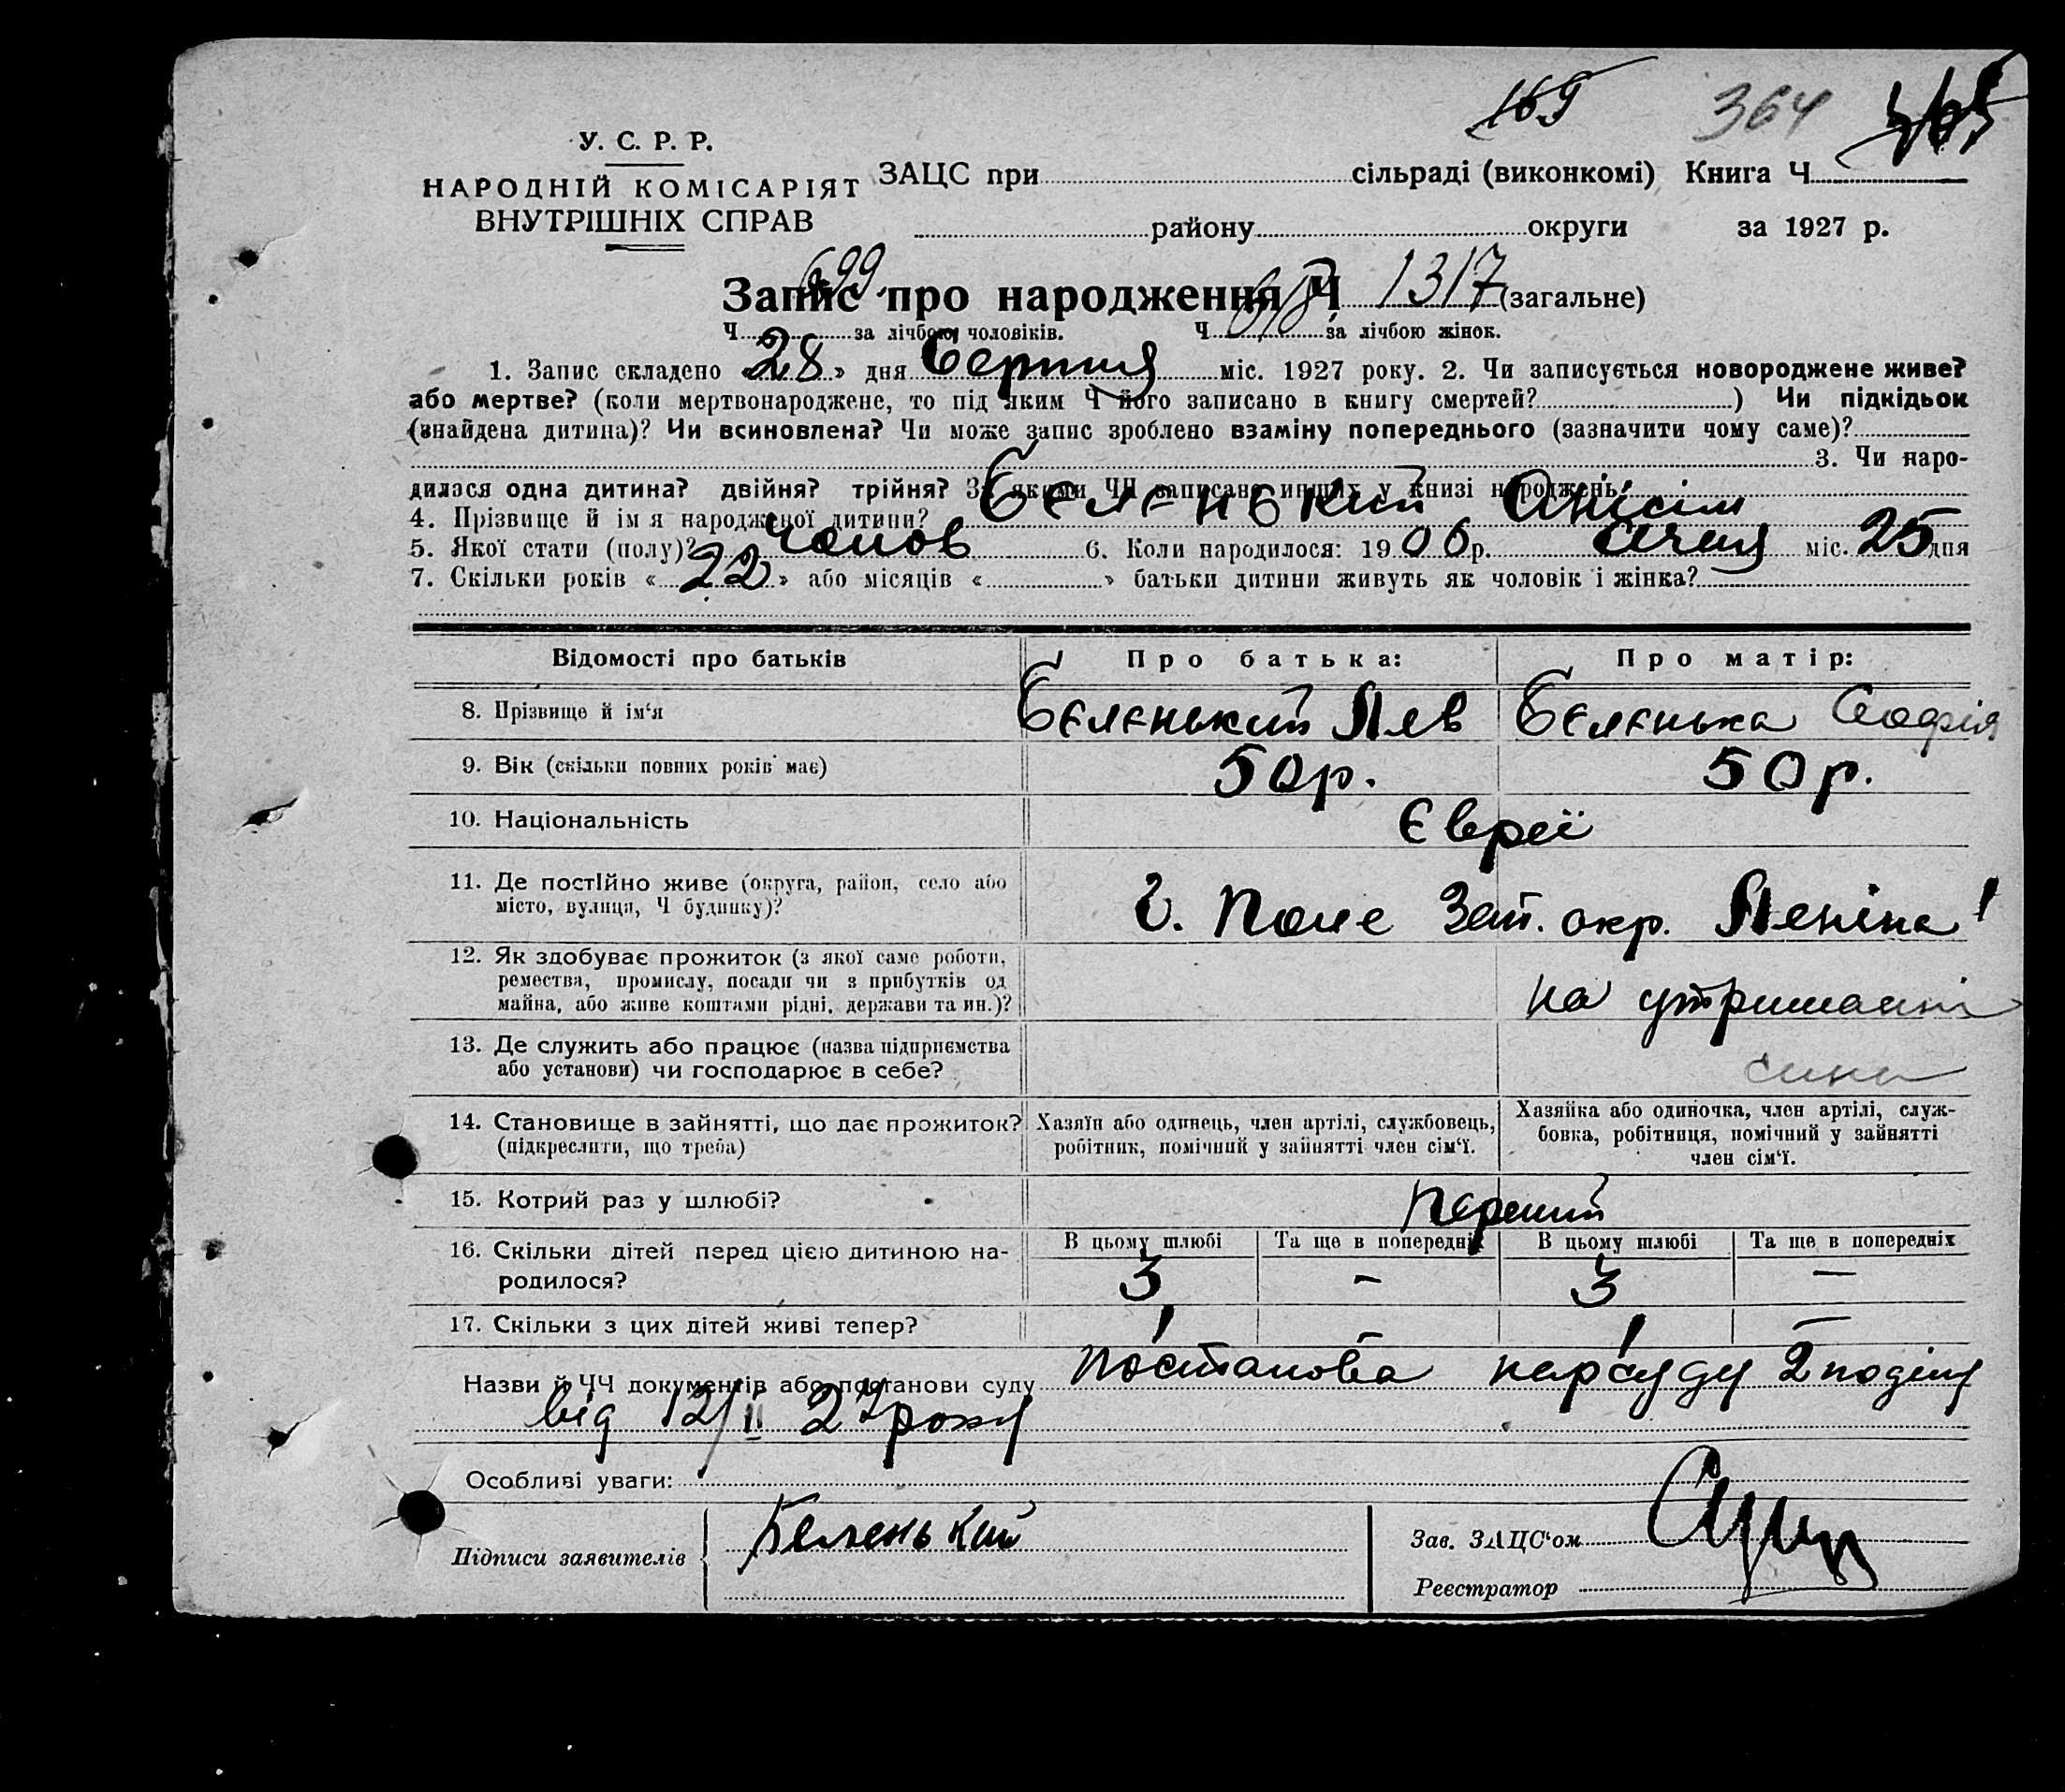 169 364
У. С. Р. Р.
НАРОДНІЙ КОМІСАРІЯТ
ВНУТРІШНІХ СПРАВ
ЗАЦС при сільраді (виконкомі) Книга Ч
району округи за 1927 р.
699
Запис про народження Ч 1317 (загальне)
Ч за лічбою чоловіків. Ч 618 за лічбою жінок.
1. Запис складено « 28 » дня Серпня міс. 1927 року. 2. Чи записується новороджене живе?
або мертве? (коли мертвонароджене, то під яким Ч його записано в книгу смертей? ) Чи підкідьок
(знайдена дитина)? Чи всиновлена? Чи може запис зроблено взаміну попереднього (зазначити чому саме)?
3. Чи наро-
дилася одна дитина? двійня? трійня? За якими ЧЧ записано инших у книзі народжень:
4. Прізвище й ім я народженої дитини? Бєлєнький Анісім
5. Якої стати (полу)? Чолов 6. Коли народилося: 1906 р. Січня міс. 25 дня
7. Скільки років « 22 » або місяців « » батьки дитини живуть як чоловік і жінка?
Відомості про батьків Про батька: Про матір:
8. Прізвище й ім‘я Бєлєнький Лев Бєлєнька Софія
9. Вік (скільки повних років має) 50 р. 50 р.
10. Національність Євреї
11. Де постійно живе (округа, район, село або
місто, вулиця, Ч будинку)? Г. Поле Зап. окр. Леніна 1
12. Як здобуває прожиток (з якої саме роботи,
ремества, промислу, посади чи з прибутків од
майна, або живе коштами рідні, держави та ин.)? на утриманні
13. Де служить або працює (назва підприємства
або установи) чи господарює в себе? сина
14. Становище в зайнятті, що дає прожиток?
(підкреслити, що треба)
Хазяїн або одинець, член артілі, службовець,
робітник, помічний у зайнятті член сім‘ї.
Хазяйка або одиночка, член артілі, служ-
бовка, робітниця, помічний у зайнятті
член сім‘ї.
15. Котрий раз у шлюбі? Перший
16. Скільки дітей перед цією дитиною на-
родилося?
В цьому шлюбі Та ще в попередніх В цьому шлюбі Та ще в попередніх
3 – 3 —
17. Скільки з цих дітей живі тепер? 1 – 1 –
Назви й ЧЧ документів або постанови суду Постанова нарсуду 2 поділу
від 12/II 27 року
Особливі уваги:
Підписи заявителів Беленький
Зав. ЗАЦС‘ом
Реєстратор